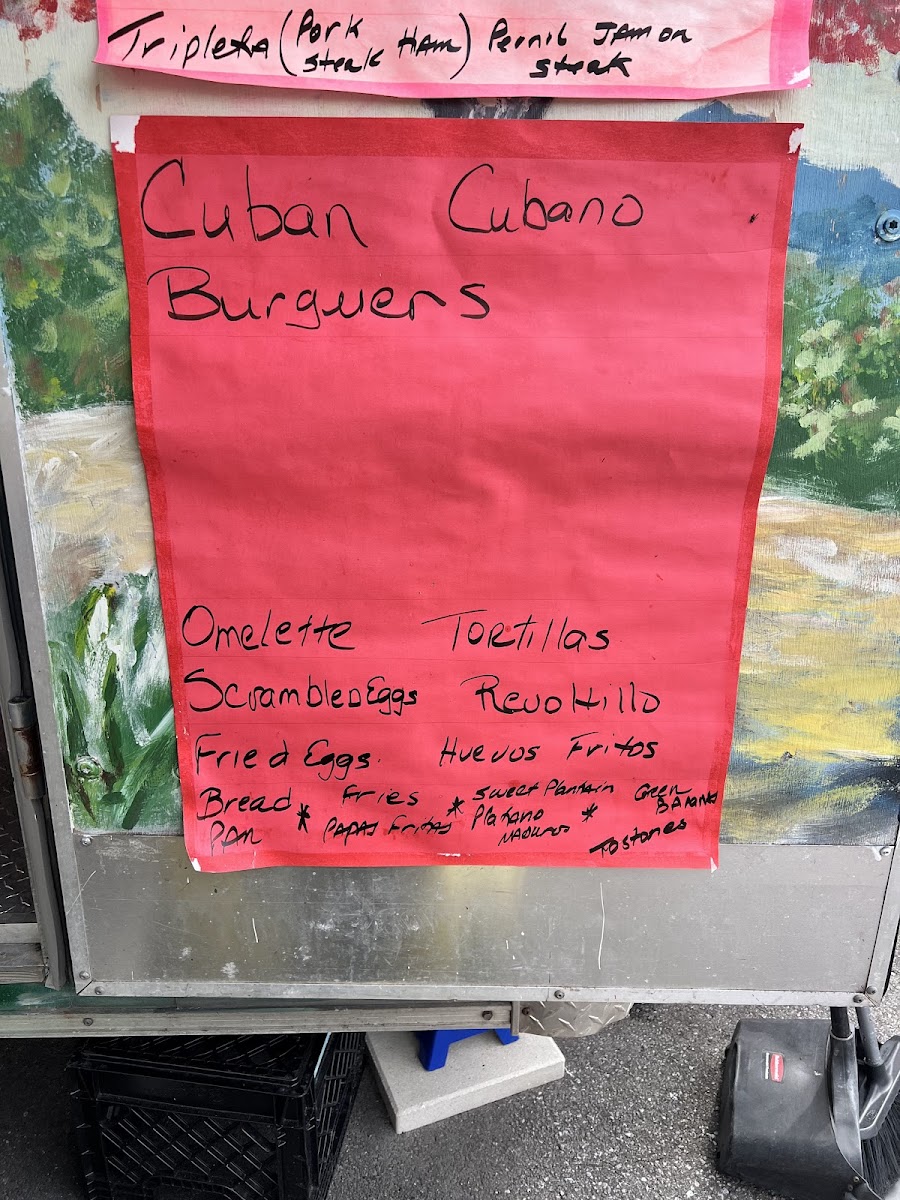 Tripleta (Pork Steak HAM) Pernil JAMON Steak
Cuban Cubano
Burguers
Omelette Tortillas
Scrambled Eggs Revoltillo
Fried Eggs. Huevos Fritos
Bread * Fries * Sweet Plantain * Green BANANAS
PAN PAPAS Fritas Platano MADUROS Tostones